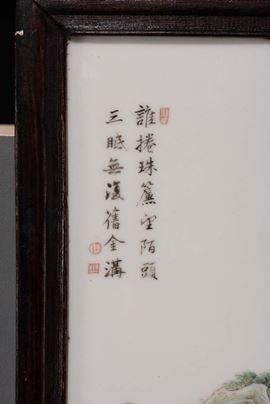 誰捲珠簾望陌頭
三眠無復舊金溝